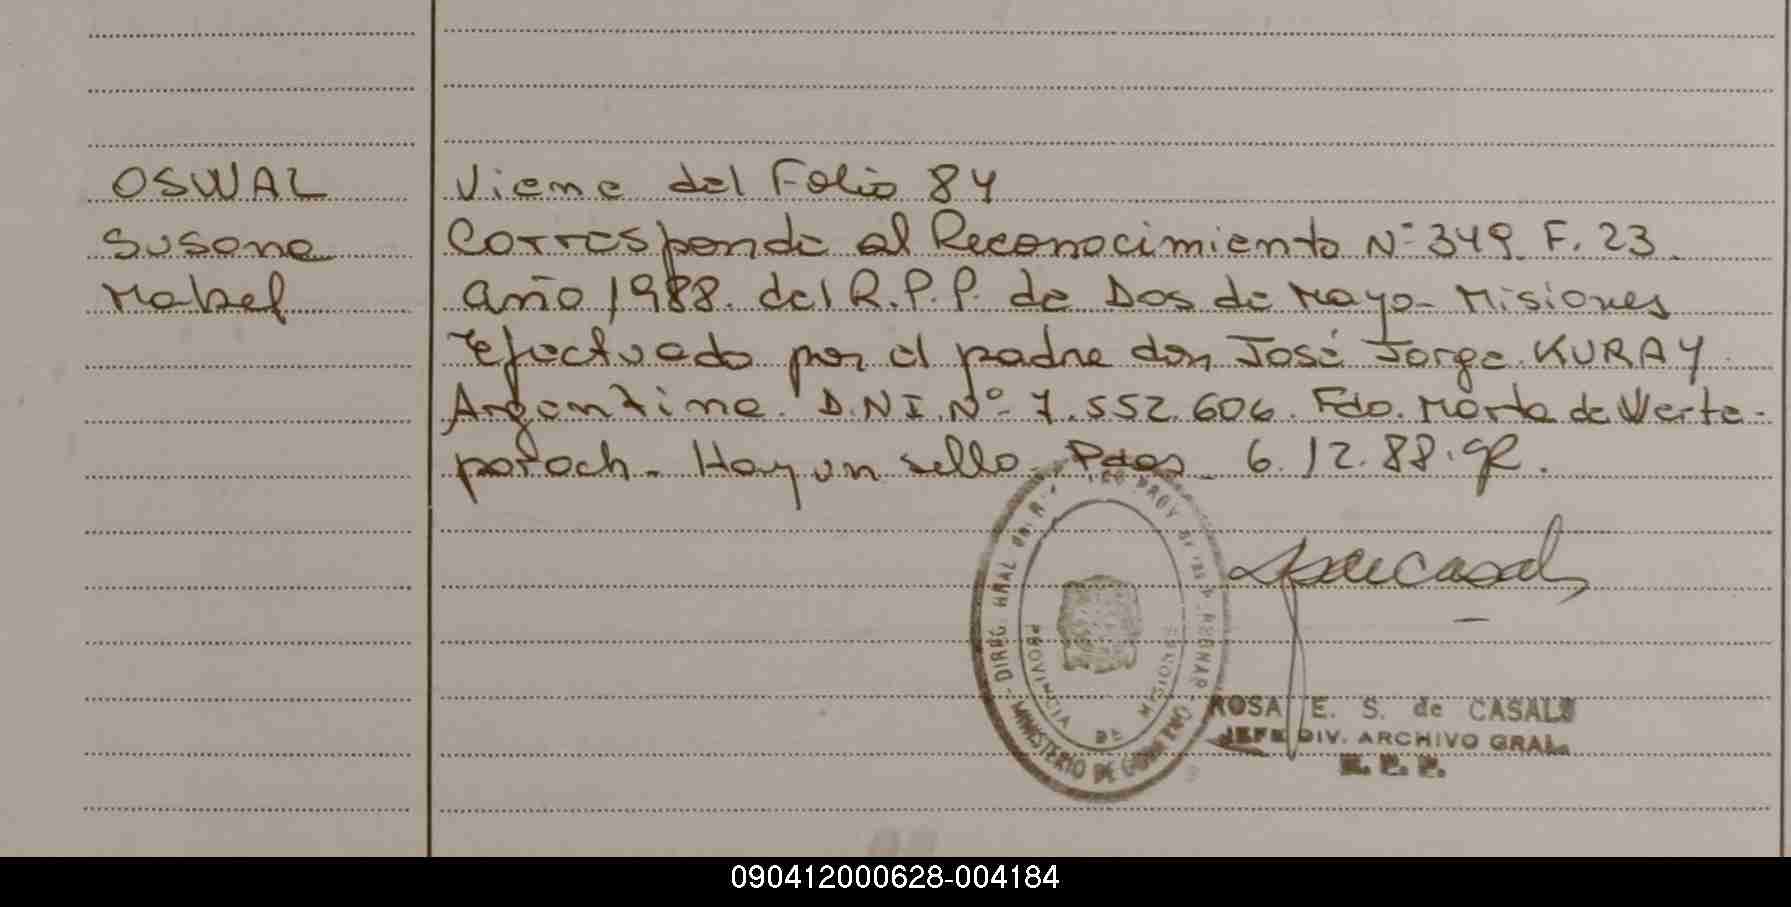 OSWAL
Susana
Mabel
Viene del Folio 84
Corresponde al Reconocimiento Nº 349 F. 23
año 1988. del R.P.P. de Dos de Mayo - Misiones
Efectuado por el padre don José Jorge KURAY
Argentino. D.N.I. Nº 7.552.606. Fdo. Marta de Werte-
poroch. Hay un sello. Pdas 6.12.88.
DIREC. GRAL DE R
PROVINCIA DE MISIONES
MINISTERIO DE GOBIERNO
ROSA E. S. de CASALS
JEFE DIV. ARCHIVO GRAL.
R. P. P.
090412000628-004184